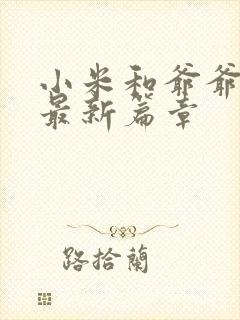 小米和爷爷
最新篇章
路拾蘭